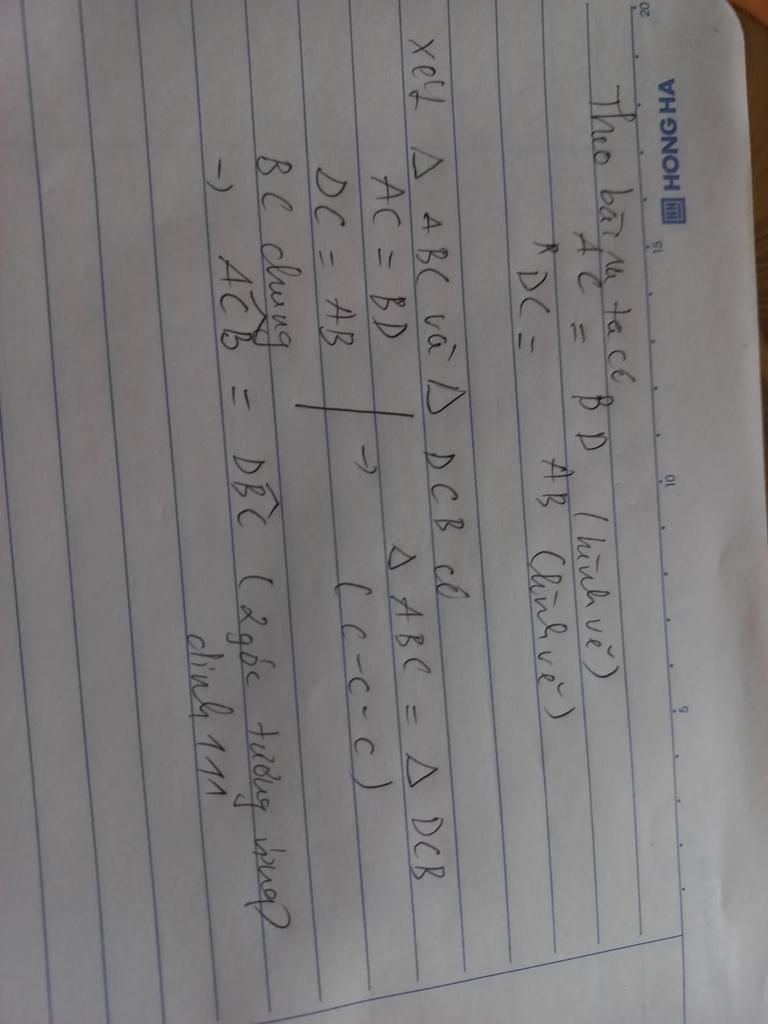 HONG HA
20 15 10 5
Theo bài ra ta có
AC = BD (hình vẽ)
DC = AB (hình vẽ)
xét Δ ABC và Δ DCB có
AC = BD
DC = AB → Δ ABC = Δ DCB
BC chung (c-c-c)
→ ACB = DBC (2 góc tương ứng)